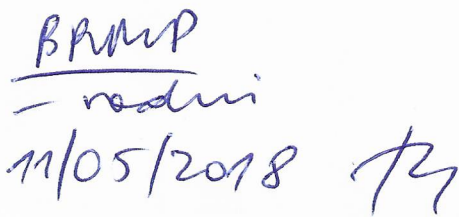 BRMP
- radni
11/05/2018